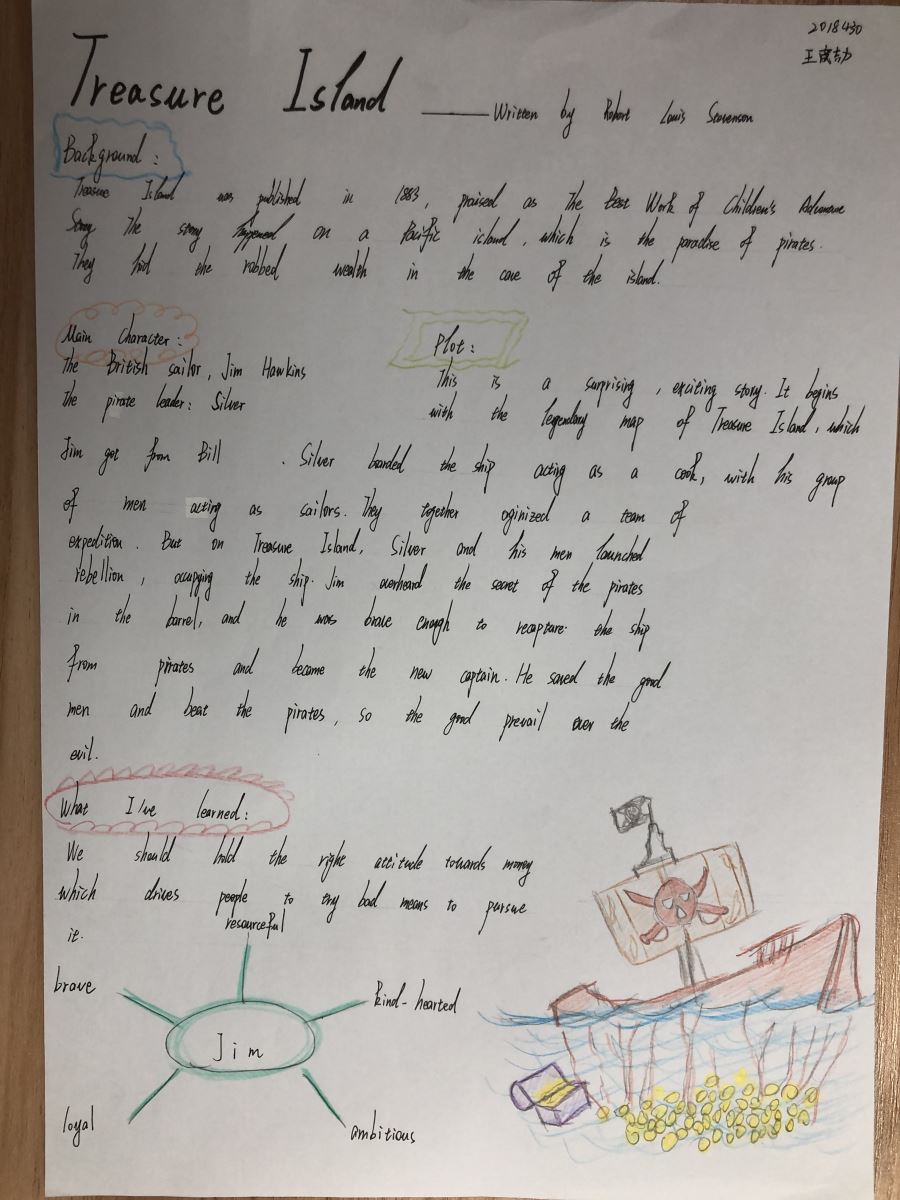 2018430
王
Treasure Island
——Written by Robert Louis Stevenson
Background:
Treasure Island was published in 1883, praised as The Best Work of Children's Advenure
Story The story happened on a Pacific island, which is the paradise of pirates.
They hid the robbed wealth in the cave of the island.
Main Character:
The British sailor, Jim Hawkins
The pirate leader: Silver
Plot:
This is a surprising, exciting story. It begins
with the legendary map of Treasure Island, which
Jim got from Bill. Silver boarded the ship acting as a cook, with his group
of men acting as sailors. They together oginized a team of
expedition. But on Treasure Island, Silver and his men launched
rebellion, occupying the ship. Jim overheard the secret of the pirates
in the barrel, and he was brave enough to recapture the ship
from pirates and became the new captain. He saved the good
men and beat the pirates, so the good prevail over the
evil.
What I've learned:
We should hold the right attitude towards money
which drives people to try bad means to pursue
it.
resourceful
brave
kind-hearted
Jim
loyal
ambitious